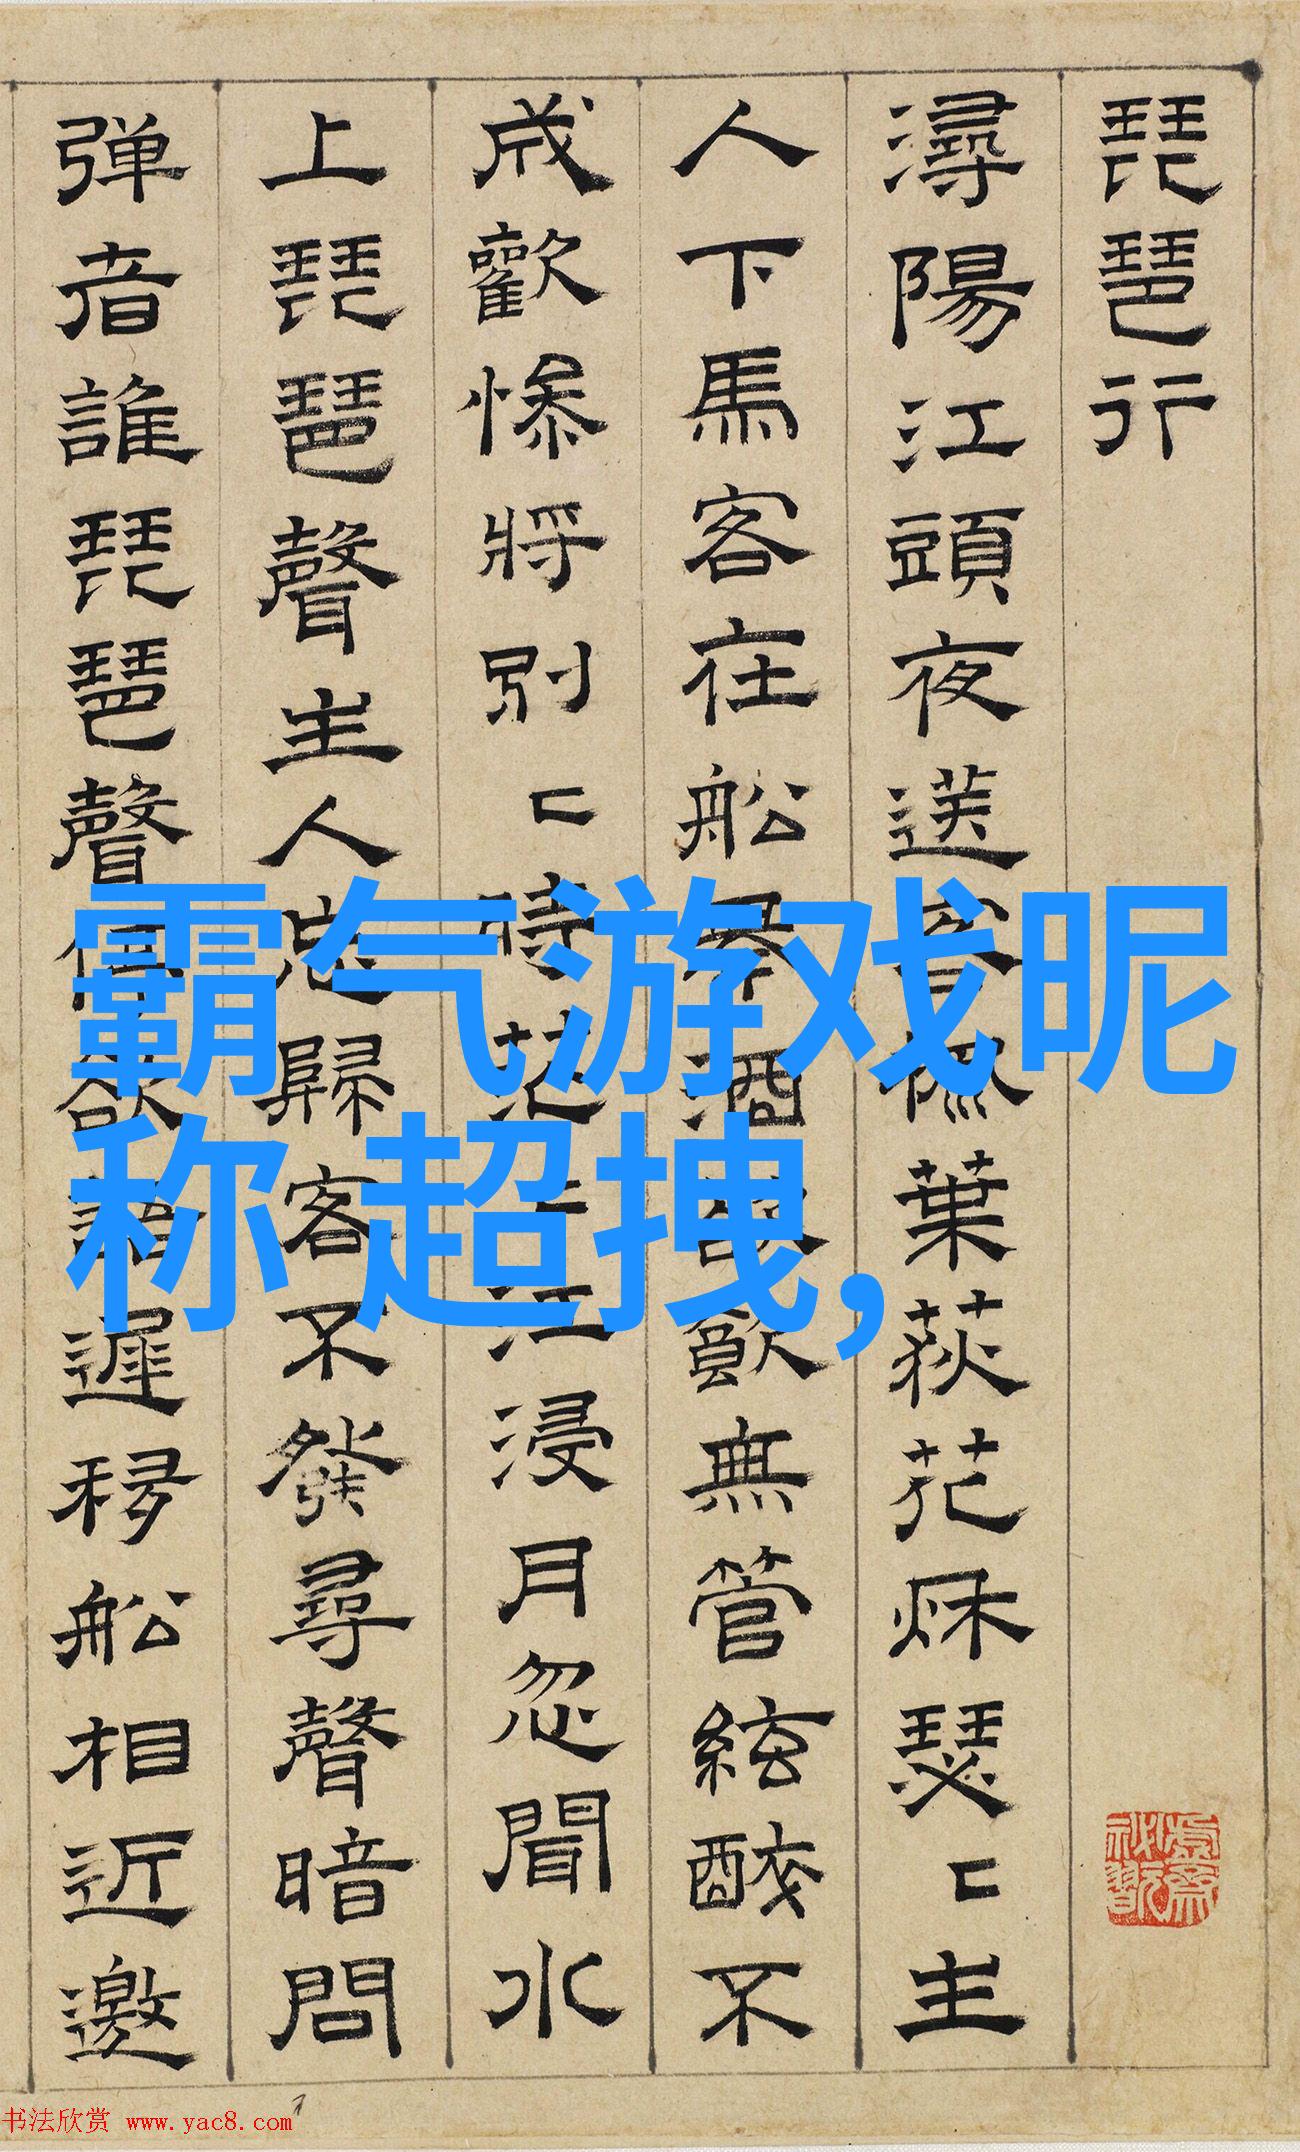 琵琶行
潯陽江頭夜送客楓葉荻花秌瑟〻主
人下馬客在船舉酒欲飲無管絃醉不
成歡慘將別〻時茫〻江浸月忽聞水
上琵琶聲主人忘歸客不發尋聲暗問
弹者誰琵琶聲停欲語遲移船相近邀
霸气游戏昵
称 超拽,
书法欣赏 www.yac8.com